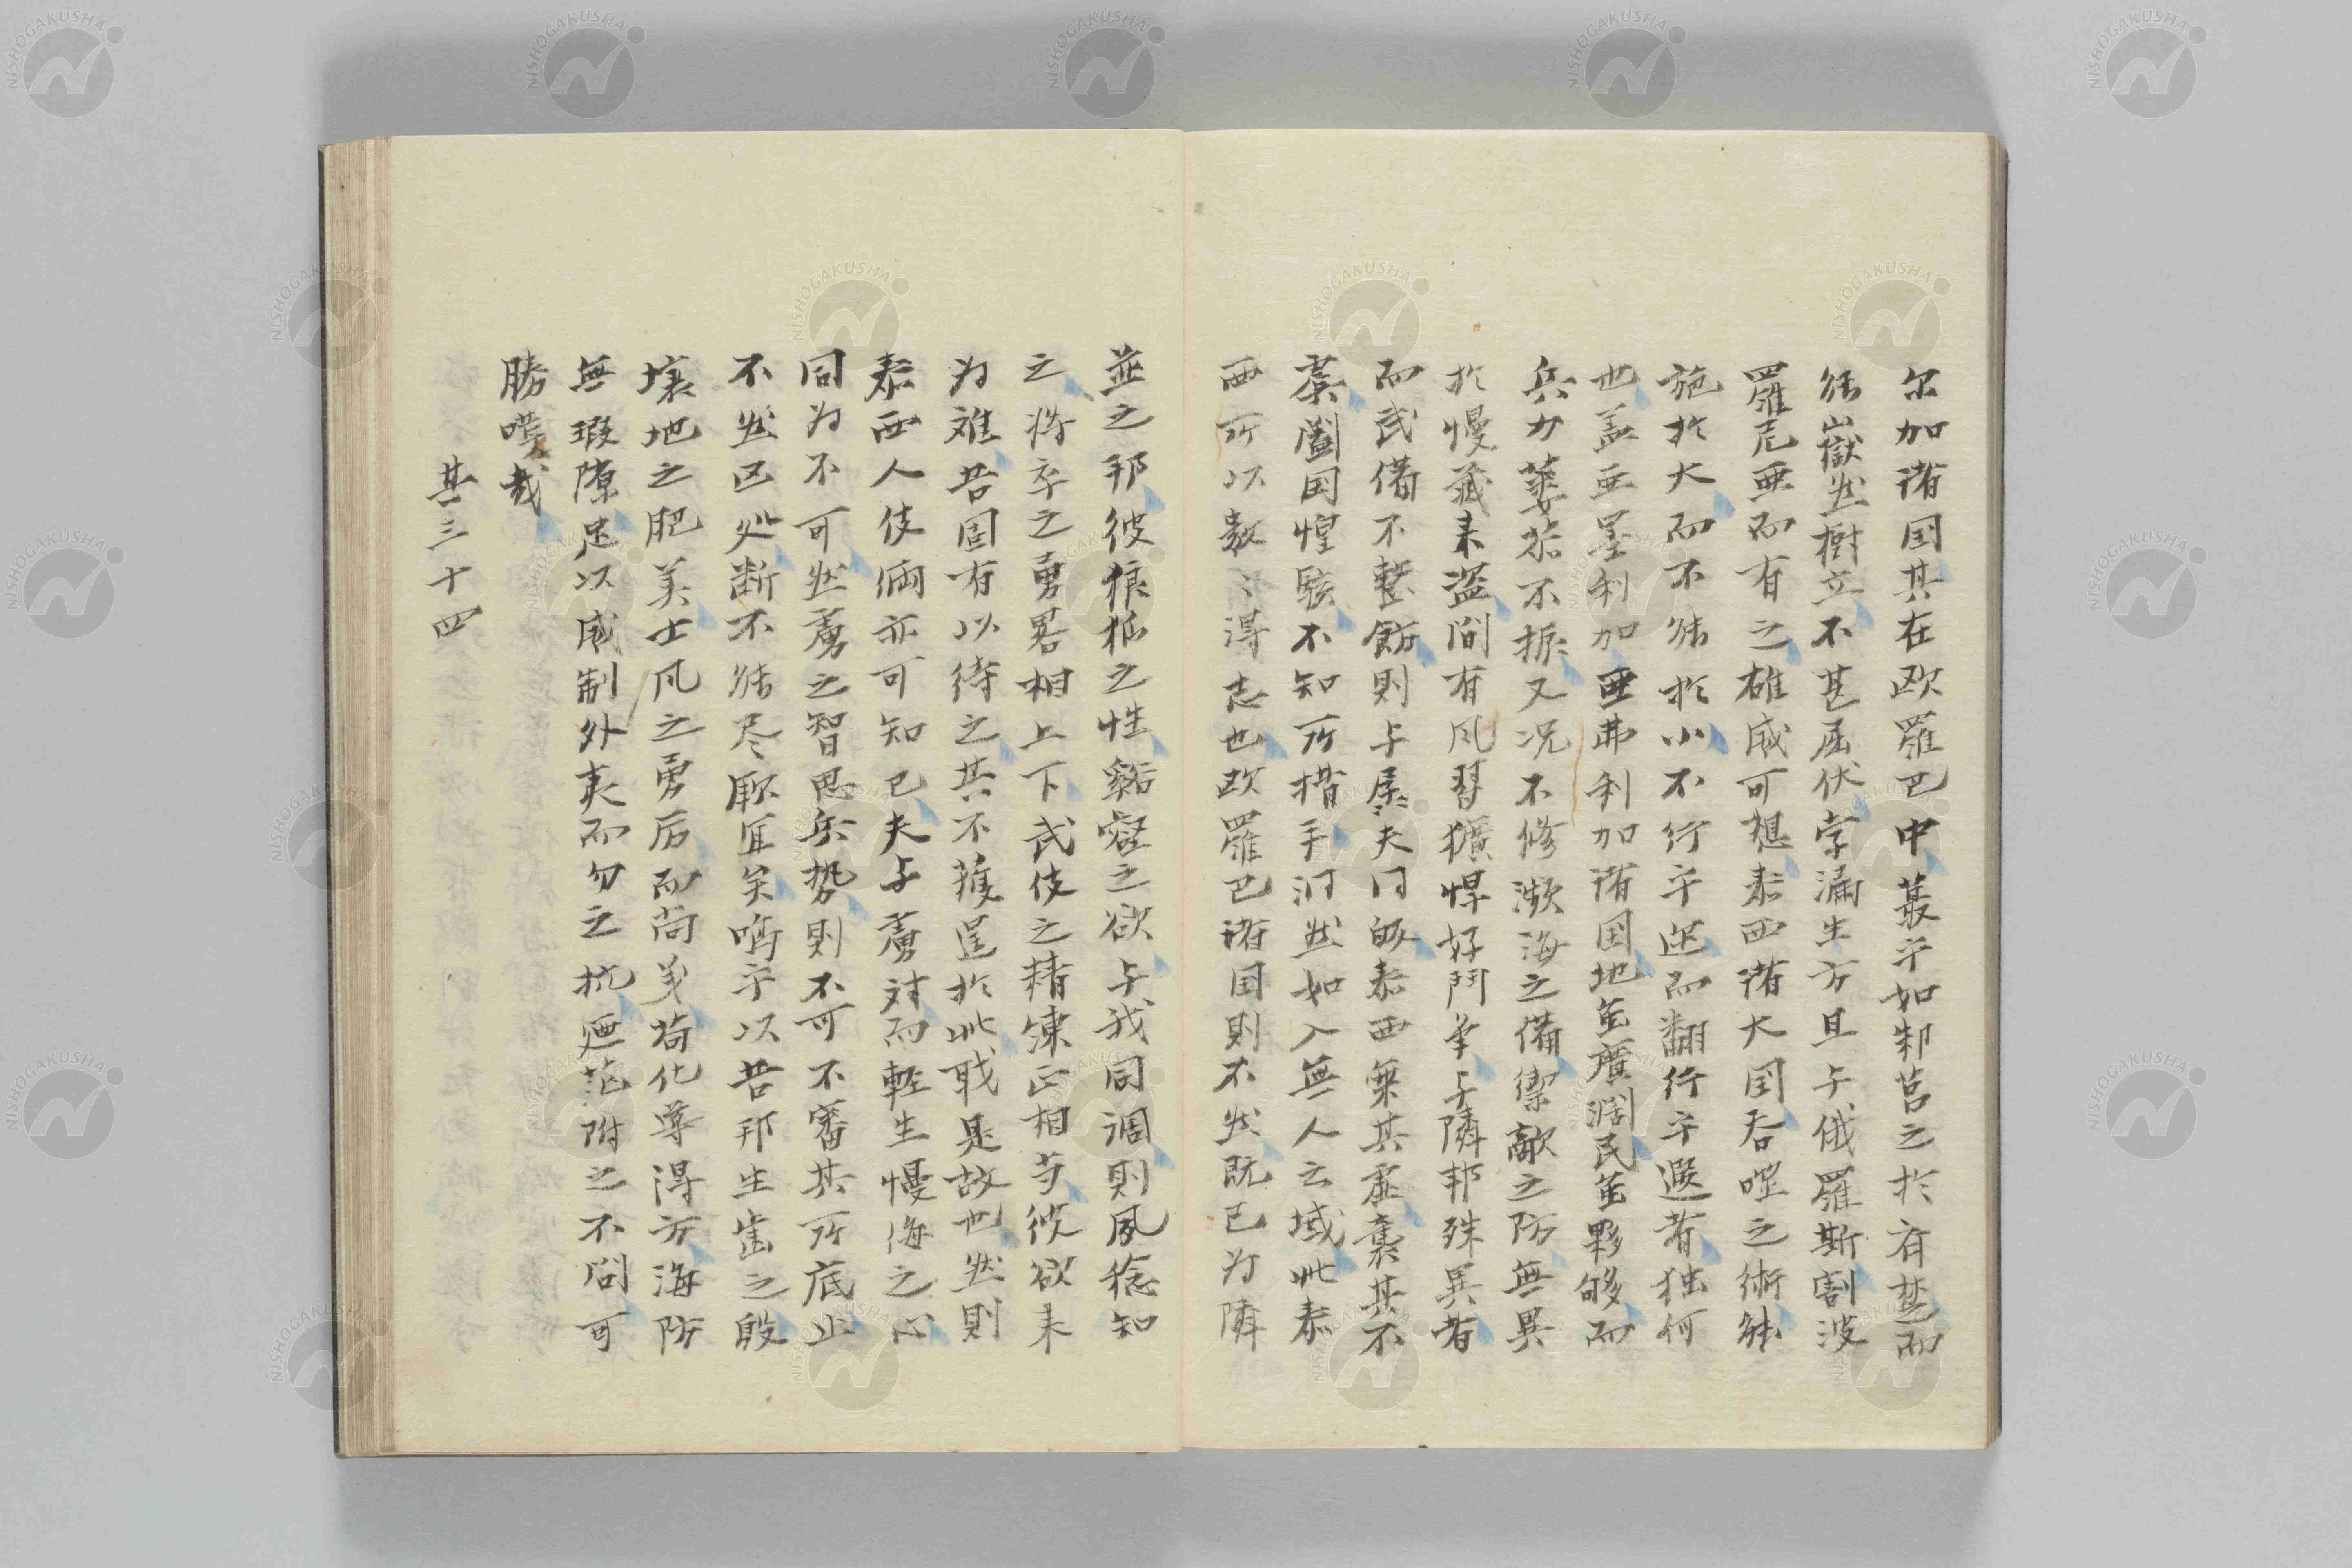 尔加諸国其在欧羅巴中蕞乎如邾莒之於斉楚而
能嶽然樹立不甚屈伏字漏生方且与俄羅斯割波
羅尼亜而有之雄威可想泰西諸大国呑噬之術能
施於大而不能於小不行乎迩而翻行乎遐者独何
也盖亜墨利加亜弗利加諸国地虽廣濶民虽夥够而
兵力萎苶不振又况不修瀕海之備禦敵之防無異
於慢蔵来盗間有風習獷悍好鬥争与隣邦殊異者
而武備不整飭則与孱夫同帰泰西乗其虚襲其不
虞闔国惶駭不知所措手洞然如入無人之域此泰
西所以数〻得志也欧羅巴諸国則不然既已为隣
並之邦彼狼狐之性谿壑之欲与我同調則夙稔知
之将卒之勇畧相上下武伎之精凍正相等彼欲来
为难吾固有以待之其不獲逞於此戝是故也然則
泰西人伎倆亦可知已夫与虜対而軽生慢侮之心
固为不可然虜之智思兵勢則不可不審其所底止
不然区処断不能尽厭宜矣嗚乎以吾邦生歯之殷
壌地之肥美士凡之勇厉而尚义苟化導得方海防
無瑕隙足以威制外夷而勿之抗廼茫附之不問可
勝嘆哉
其三十四
NISHOGAKUSHA